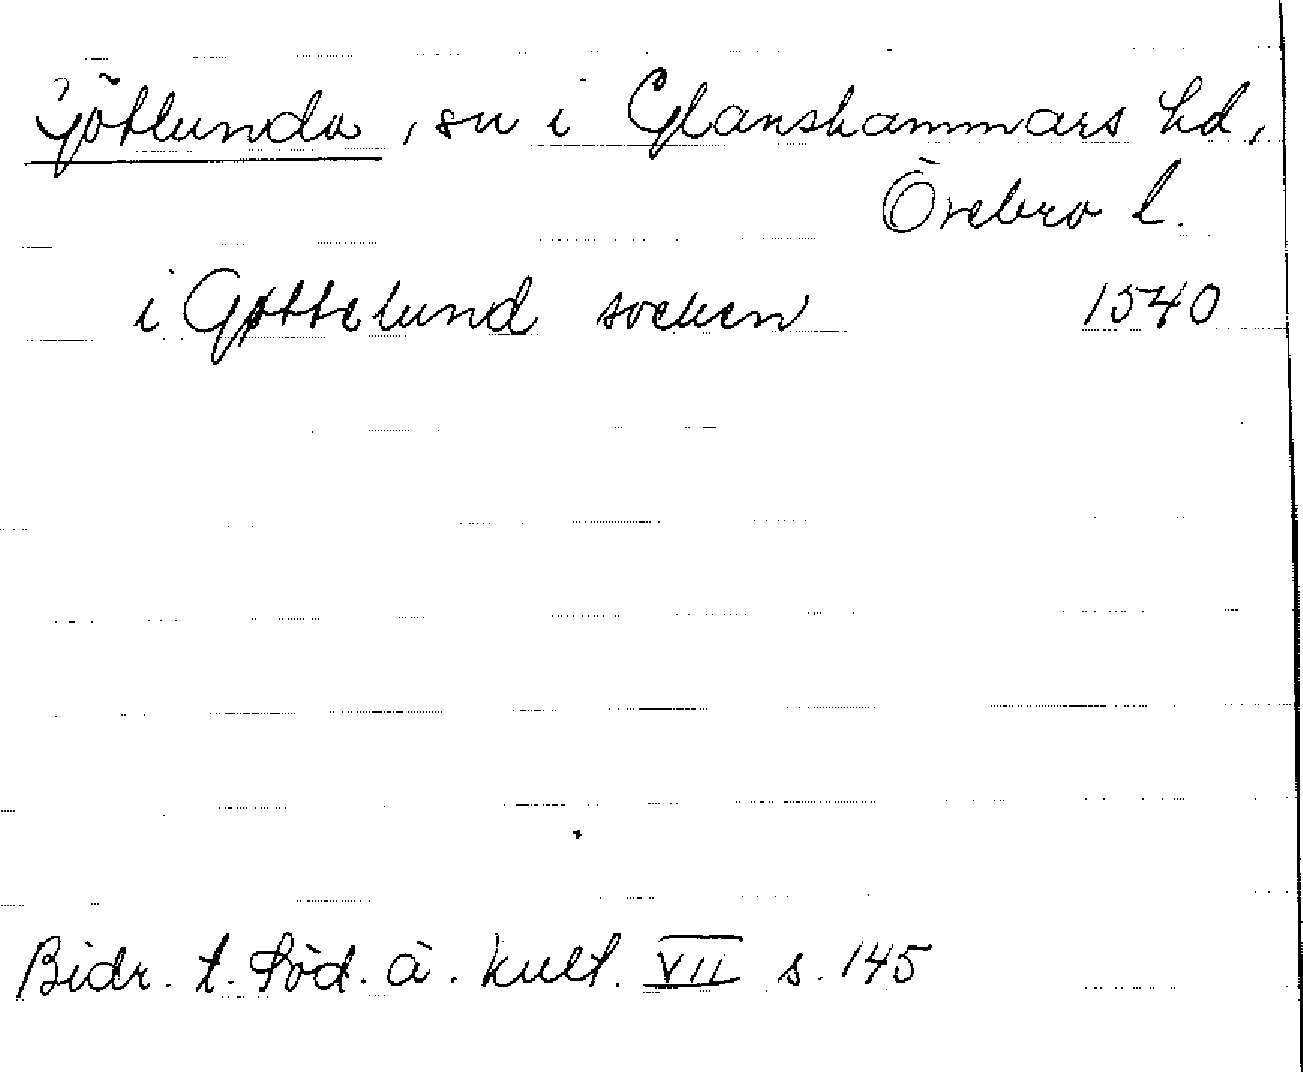 Götlunda, sn i Glanshammars hd,
Örebro l.
i Gøttelund socken 1540
Bidr. t. Söd. ä. kult. VII s. 145